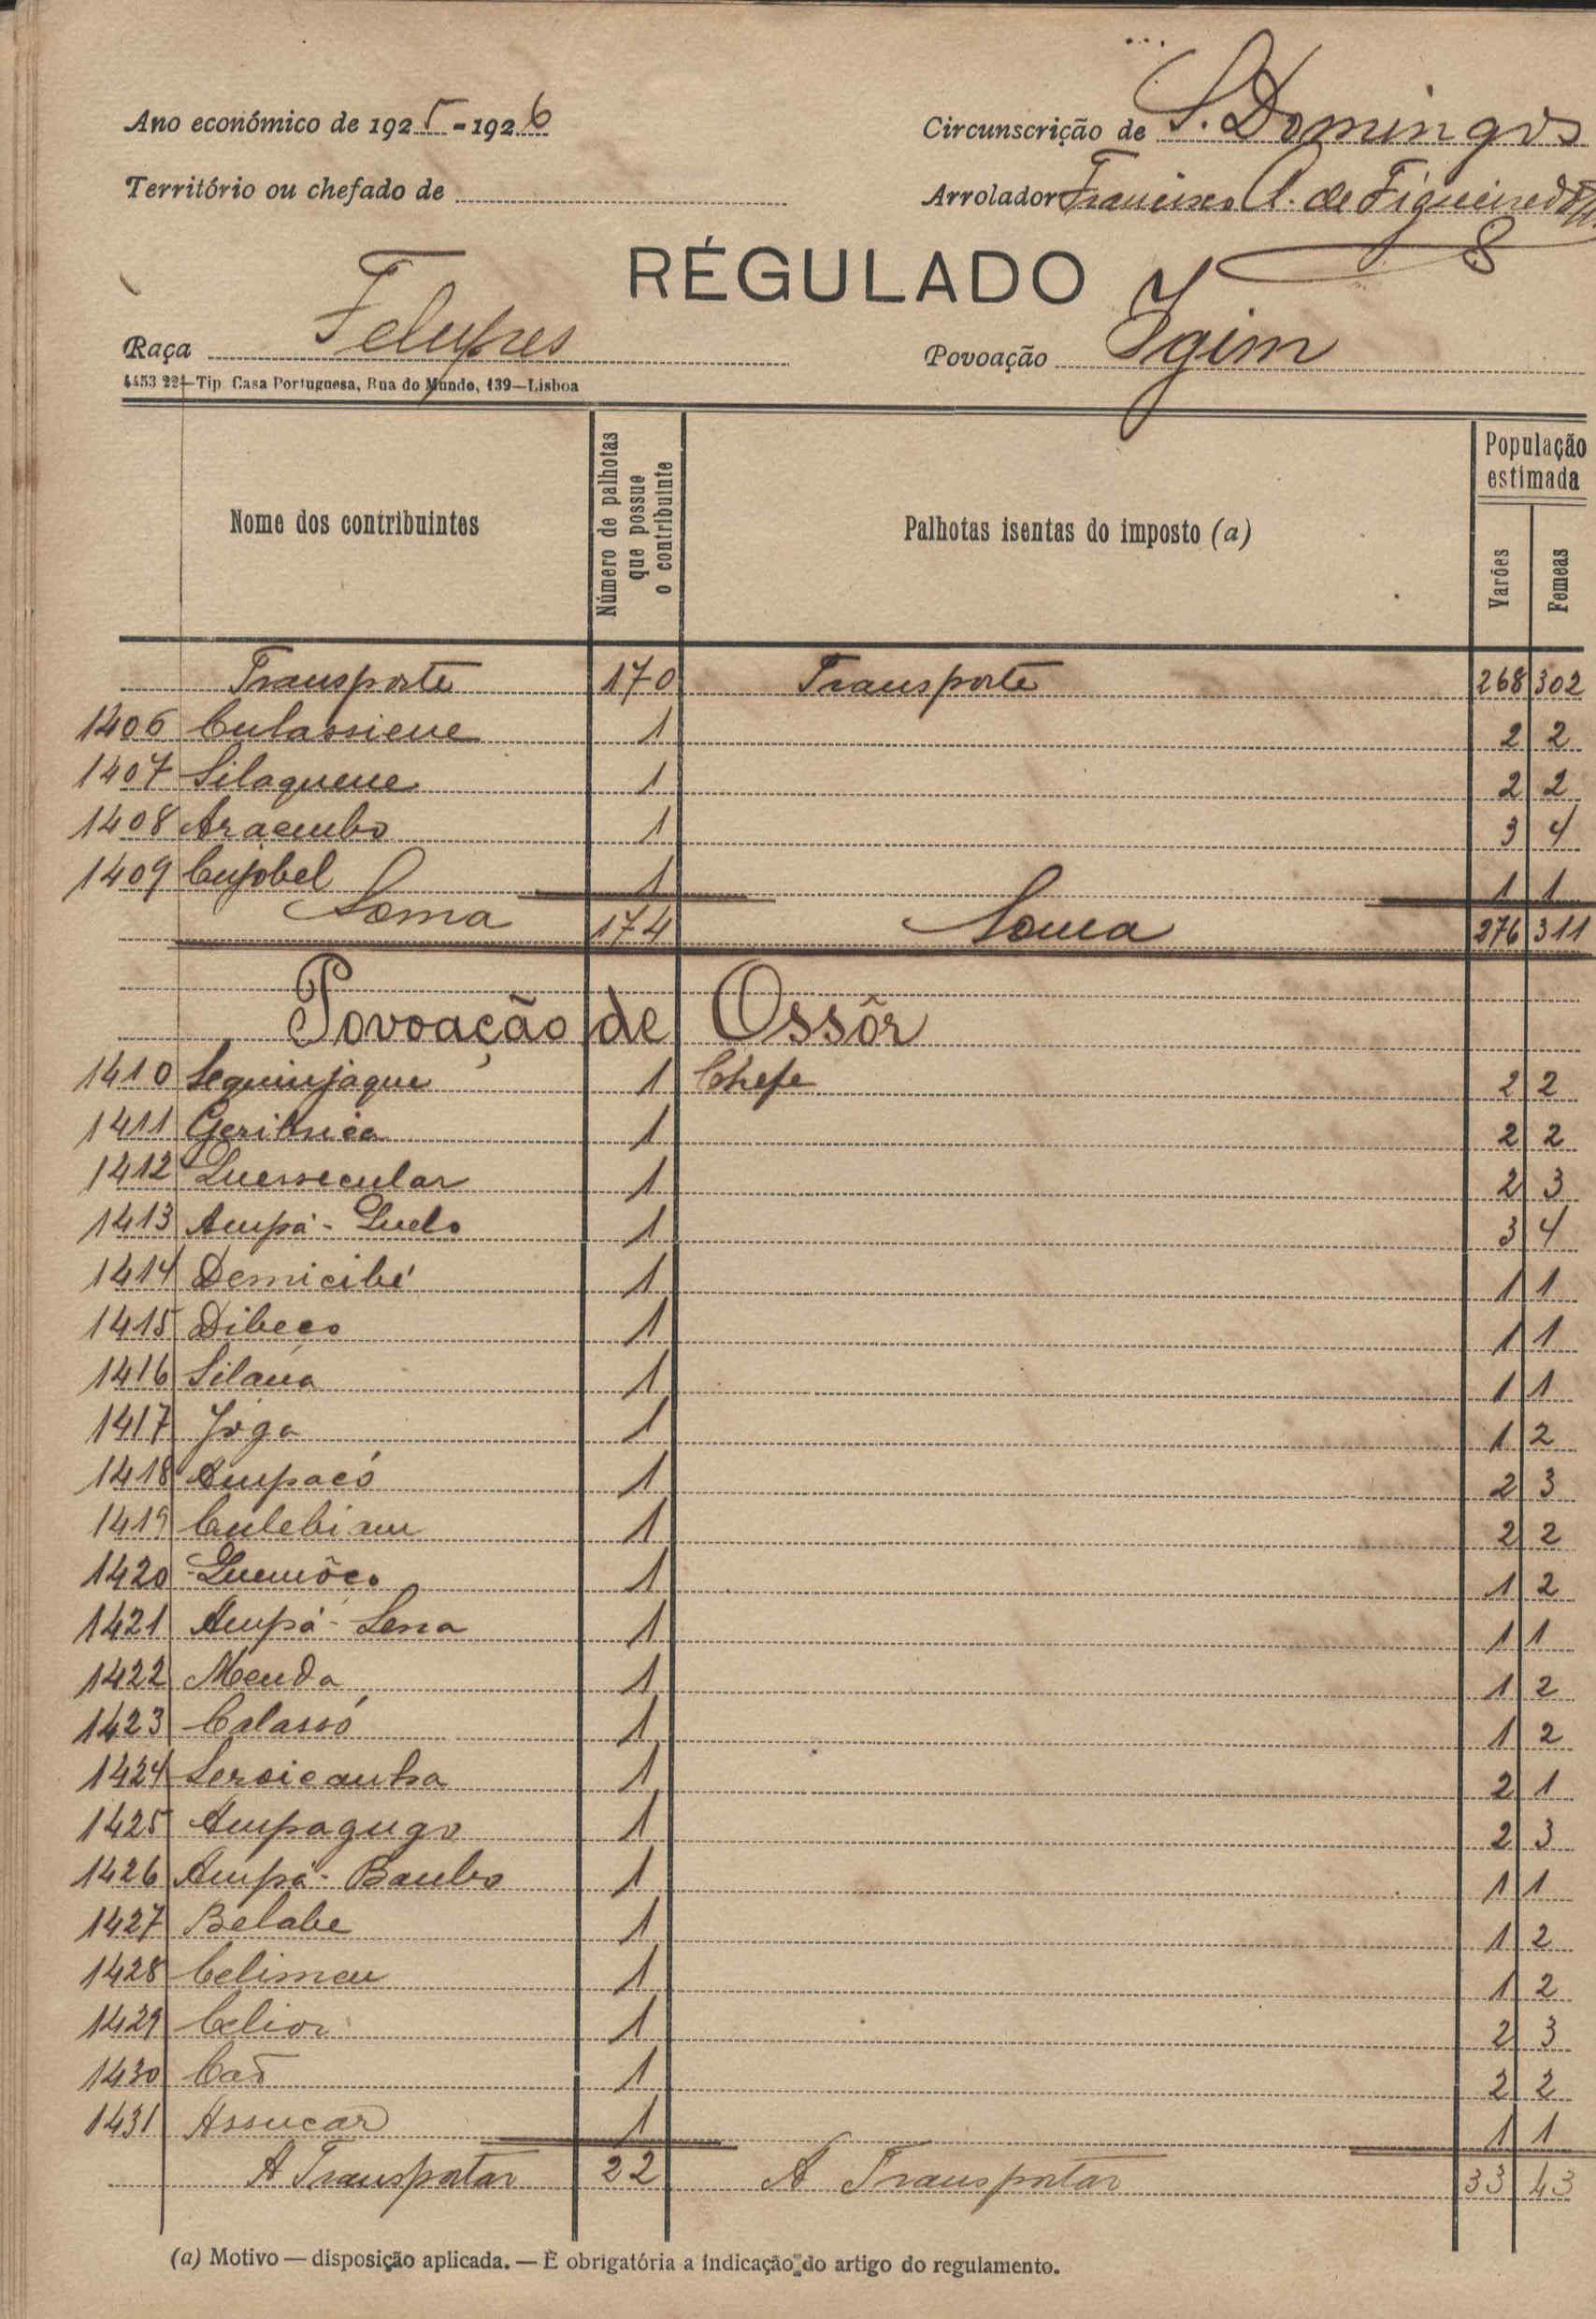 Ano económico de 1925-1926
Circunscrição de S. Domingos
Território ou chefado de
Arrolador Francisco A. de Figueiredo
REGULADO
Raça Felupes
Povoação Igim
4453 224—Tip. Casa Portuguesa, Rua do Mundo, 139—Lisboa
Nome dos contribuintes
Número de palhotas que possue o contribuinte
Palhotas isentas do imposto (a)
População estimada
Varões
Femeas
Transporte 170 Transporte 268 302
1406 Culassiene 1 2 2
1407 Silaquene 1 2 2
1408 Aracumbo 1 3 4
1409 Cujobel 1 1 1
Soma 174 Soma 276 311
Povoação de Ossôr
1410 Sequinjaque 1 Chefe 2 2
1411 1 2 2
1412 Quessecular 1 2 3
1413 Ampá-Quelo 1 3 4
1414 Demicibé 1 1 1
1415 Dibeco 1 1 1
1416 Silana 1 1 1
1417 Joga 1 1 2
1418 Ampacó 1 2 3
1419 Culebiam 1 2 2
1420 Quemôco 1 1 2
1421 Ampá-Sena 1 1 1
1422 Menda 1 1 2
1423 Calassó 1 1 2
1424 1 2 1
1425 Ampagugo 1 2 3
1426 Ampá-Bambo 1 1 1
1427 Belabe 1 1 2
1428 Celimeu 1 1 2
1429 Celior 1 2 3
1430 Caõ 1 2 2
1431 Assucar 1 1 1
A Transportar 22 A Transportar 33 43
(a) Motivo — disposição aplicada. — É obrigatória a indicação do artigo do regulamento.